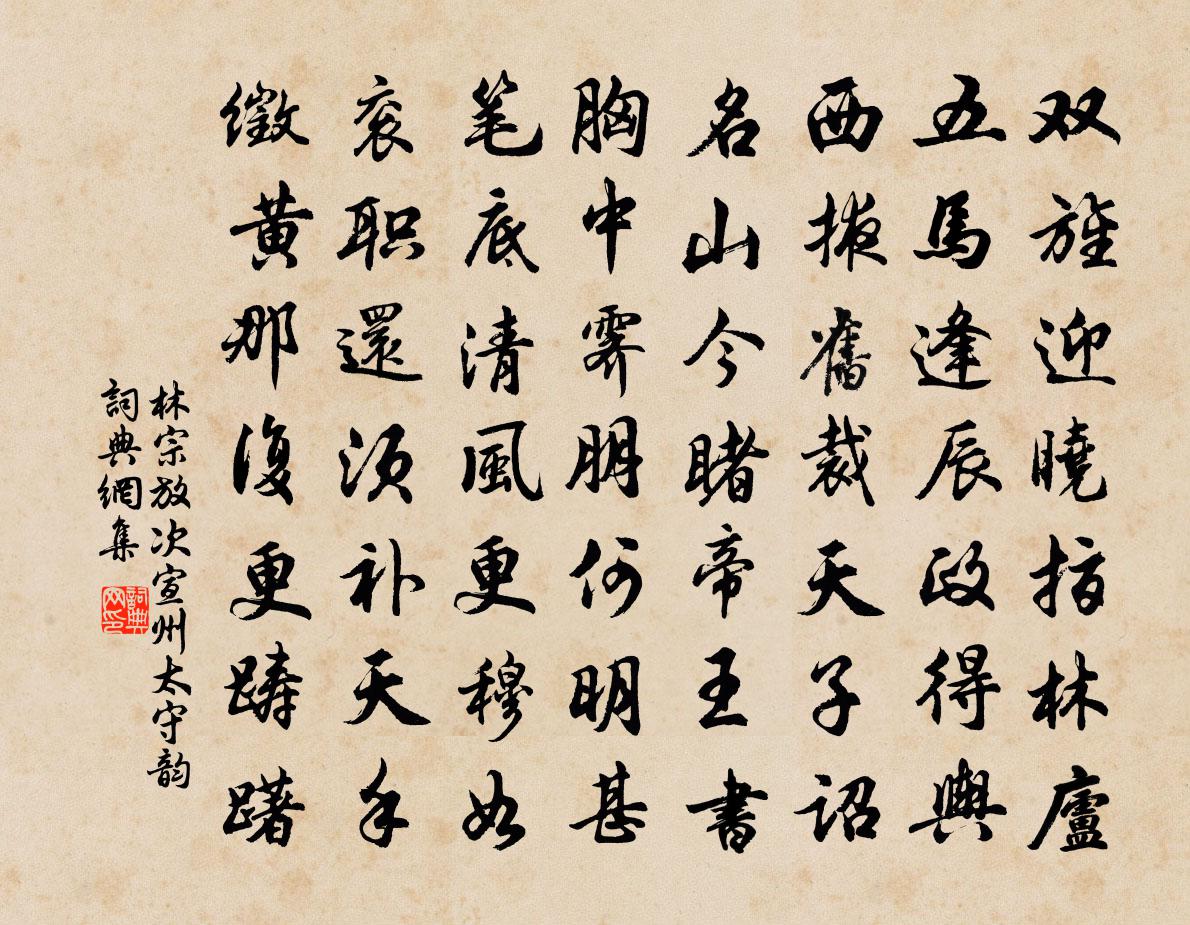 双旌迎曉指林廬
五馬逢辰政得輿
西掖舊裁天子詔
名山今睹帝王書
胸中霁朋何明甚
笔底清風更穆如
衮职還须补天手
徵黄那復更躊躇
林宗放次宣州太守韵
詞典網集
詞典网印